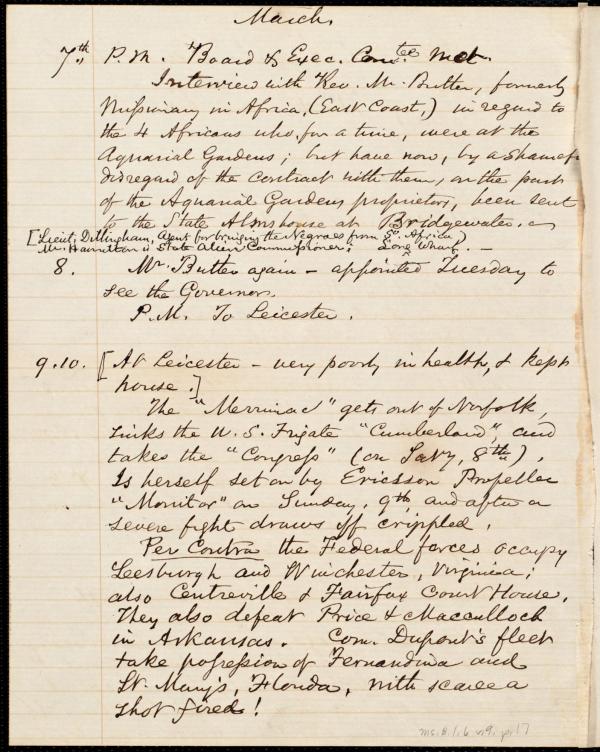 March.
7th. P.M. Board & Exec. Comtee met.
Interview with Rev. Mr. Butler, formerly
Missionary in Africa, (East Coast,) in regard to
the 4 Africans who, for a time, were at the
Aquarial Gardens; but have now, by a shameful
disregard of the contract with them, on the part
of the Aquarial Gardens proprietors, been sent
to the State Almshouse at Bridgewater.
[Lieut. Dillingham, Agent for bringing the Negroes from So. Africa)
Mr. Hamilton is State Alien Commissioner; Long Wharf. —
8. Mr. Butler again – appointed Tuesday to
see the Governor.
P.M. To Leicester.
9.10. [At Leicester – very poorly in health, & kept
house.]
The "Merrimac" gets out of Norfolk,
sinks the U.S. Frigate "Cumberland", and
takes the "Congress" (on Saty, 8th).
Is herself set on by Ericsson Propeller
"Monitor" on Sunday, 9th and after a
severe fight draws off crippled.
Per Contra the Federal forces occupy
Leesburgh and Winchester, Virginia;
also Centreville & Fairfax Court House.
They also defeat Price & Macculloch
in Arkansas. Com. Dupont's fleet
take possession of Fernandina and
St. Mary's, Florida, with scarce a
shot fired!
Ms. B.1.6 v.9, p.17